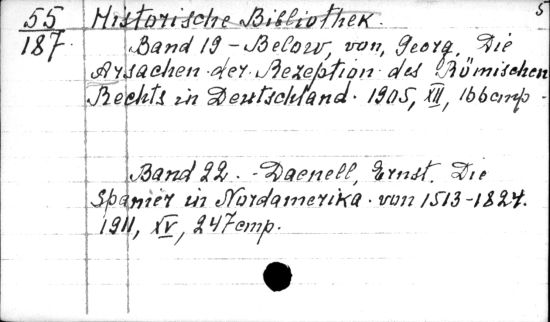 55 Historische Bibliothek. 5
187. Band 19 - Below, von, Georg. Die
Arsachen der Rezeption des Römischen
Rechts in Deutschland. 1905, XII, 166 cmp.
Band 22. - Daenell, Ernst. Die
Spanier in Nordamerika. von 1513-1824.
1911, XV, 247 cmp.